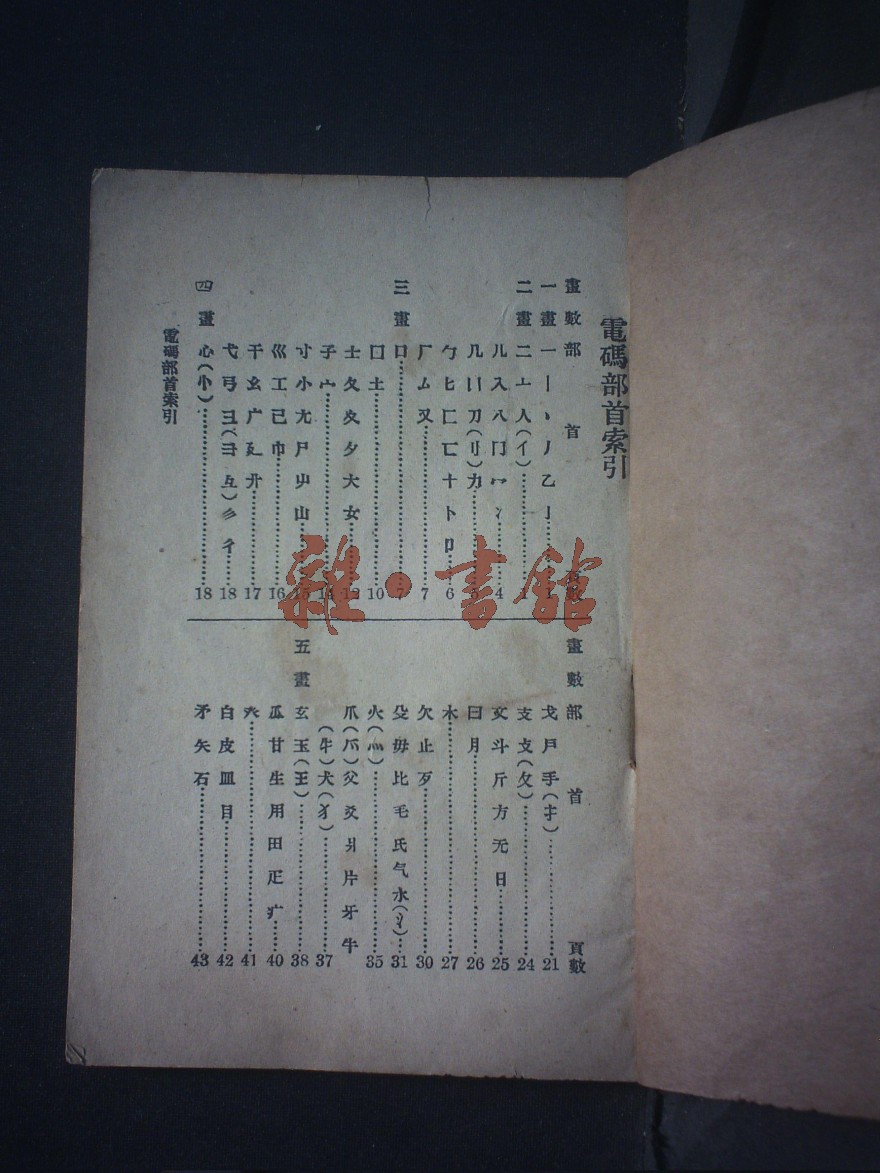 電碼部首索引
畫數 部 首 頁數
一畫 一丨丶丿乙亅 1
二畫 二亠人(亻) 1
儿入八冂冖冫 4
几凵刀(刂)力 5
勹匕匚匸十卜卩 6
厂厶又 7
三畫 口 7
囗土 10
士夂夊夕大女 12
子宀 14
寸小尢尸屮山 15
巛工己巾 16
干幺广廴廾 17
弋弓彐(彑)彡彳 18
四畫 心(忄) 18
畫數 部 首 頁數
戈戶手(扌) 21
支攴(攵) 24
文斗斤方无日 25
曰月 26
木 27
欠止歹 30
殳毋比毛氏气水(氵) 31
火(灬) 35
爪(爫)父爻爿片牙牛
(牜)犬(犭) 37
五畫 玄玉(王) 38
瓜甘生用田疋疒 40
癶 41
白皮皿目 42
矛矢石 43
電碼部首索引
雜·書館